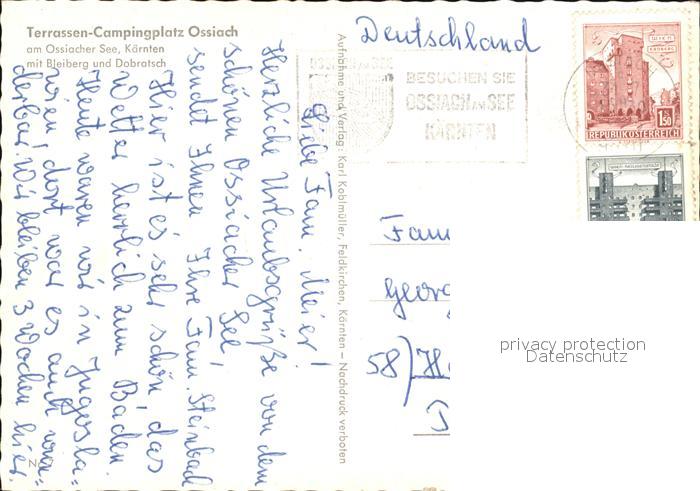 Terrassen-Campingplatz Ossiach
am Ossiacher See, Kärnten
mit Bleiberg und Dobratsch
Liebe Fam. Meier!
Herzliche Urlaubsgrüße von dem
schönen Ossiacher See!
sendet Ihnen Ihre Fam. Steinbach
Hier ist es sehr schön, das
Wetter herrlich zum Baden.
Heute waren wir in Jugosla-
wien! dort war es auch wun=
derbar. Wir bleiben 3 Wochen hier
Aufnahme und Verlag: Karl Koblmüller, Feldkirchen, Kärnten — Nachdruck verboten
Deutschland
OSSIACH AM SEE
BESUCHEN SIE
OSSIACH AM SEE
KÄRNTEN
WIEN
1.50
REPUBLIK ÖSTERREICH
Fam
Georg
58)
privacy protection
Datenschutz